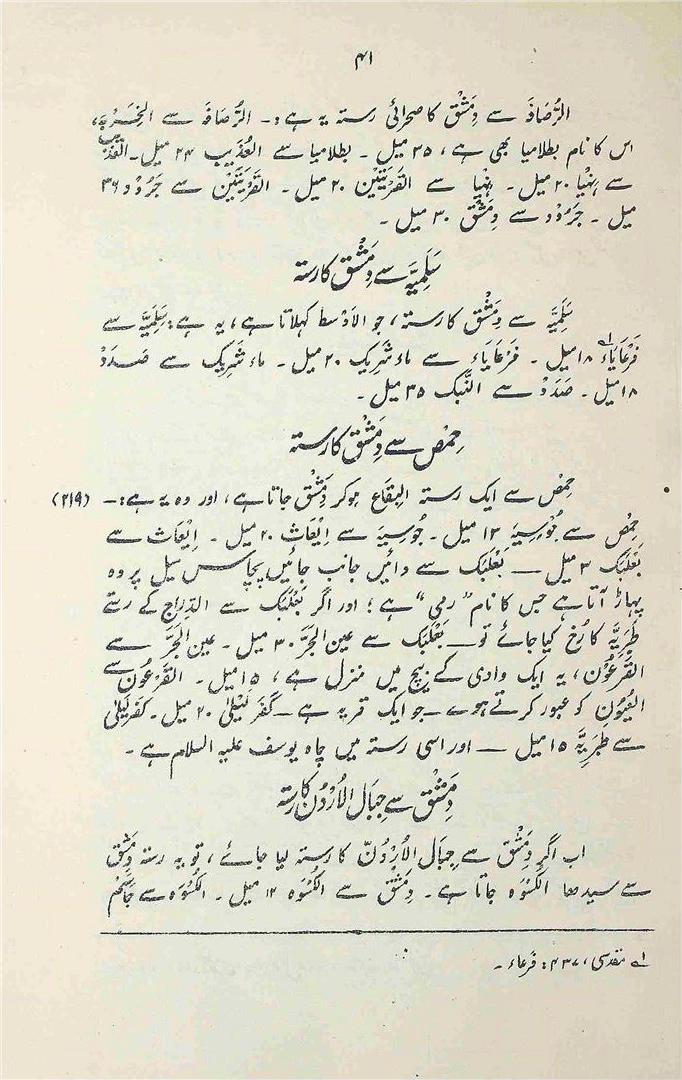 ۴۱
الرُّصافَہ سے دِمَشْق کا صحرائی رستہ یہ ہے :۔ الرُّصافَہ سے الخَرِبہ،
اس کا نام بطلامیا بھی ہے، ۳۵ میل ۔ بطلامیا سے العُذَیب ۲۴ میل۔ العُذَیب
سے نِہْیا ۲۰ میل۔ نِہْیا سے القَرْیَتَیْن ۲۰ میل۔ القَرْیَتَیْن سے جَرُوْد ۳۶
میل ۔ جَرُوْد سے دِمَشْق ۳۰ میل ۔
سَلَمِیَّہ سے دِمَشْق کا رستہ
سَلَمِیَّہ سے دِمَشْق کا رستہ، جو الاَوْسط کہلاتا ہے، یہ ہے : سَلَمِیَّہ سے
فَرْعَایَاء ؂۱ ۱۸ میل ۔ فَرْعَایَاء سے ماء شَرِیک ۲۰ میل ۔ ماء شَرِیک سے صَدَدْ
۱۸ میل ۔ صَدَدْ سے النَّبک ۳۵ میل ۔
حِمْص سے دِمَشْق کا رستہ
حِمْص سے ایک رستہ البِقاع ہوکر دِمَشْق جاتا ہے، اور وہ یہ ہے :۔ (۲۱۹)
حِمْص سے جُوْسِیَہ ۱۳ میل ۔ جُوْسِیَہ سے اِیْعَاث ۲۰ میل ۔ اِیْعَاث سے
بَعْلَبَک ۳ میل ــــ بَعْلَبَک سے دائیں جانب جائیں پچاس میل پر وہ
پہاڑ آتا ہے جس کا نام ”رمی“ ہے ؛ اور اگر بَعْلَبَک سے الدِّراج کے رستے
طَبَرِیَّہ کا رُخ کیا جائے تو ــ بَعْلَبَک سے عین الجَرّ ۳۰ میل ۔ عین الجَرّ سے
القَرْعُون، یہ ایک وادی کے بیچ میں منزل ہے، ۱۵ میل ۔ القَرْعُون سے
العُیُون کو عبور کرتے ہوے ــ جو ایک قریہ ہے ــ کَفَر لَیْلیٰ ۲۰ میل ۔ کفر لَیلیٰ
سے طَبَرِیَّہ ۱۵ میل ــــ اور اسی رستہ میں چاہِ یوسف علیہ السلام ہے ۔
دِمَشْق سے جِبَال الاُرْدُنّ کا رستہ
اب اگر دِمَشْق سے جِبَال الاُرْدُنّ کا رستہ لیا جائے، تو یہ رستہ دِمَشْق
سے سیدھا الکُسْوَہ جاتا ہے۔ دِمَشْق سے الکُسْوَہ ۱۲ میل ۔ الکُسْوَہ سے جَاسَم
؂۱ مقدسی، ۴۳۷ : فرعاء ۔